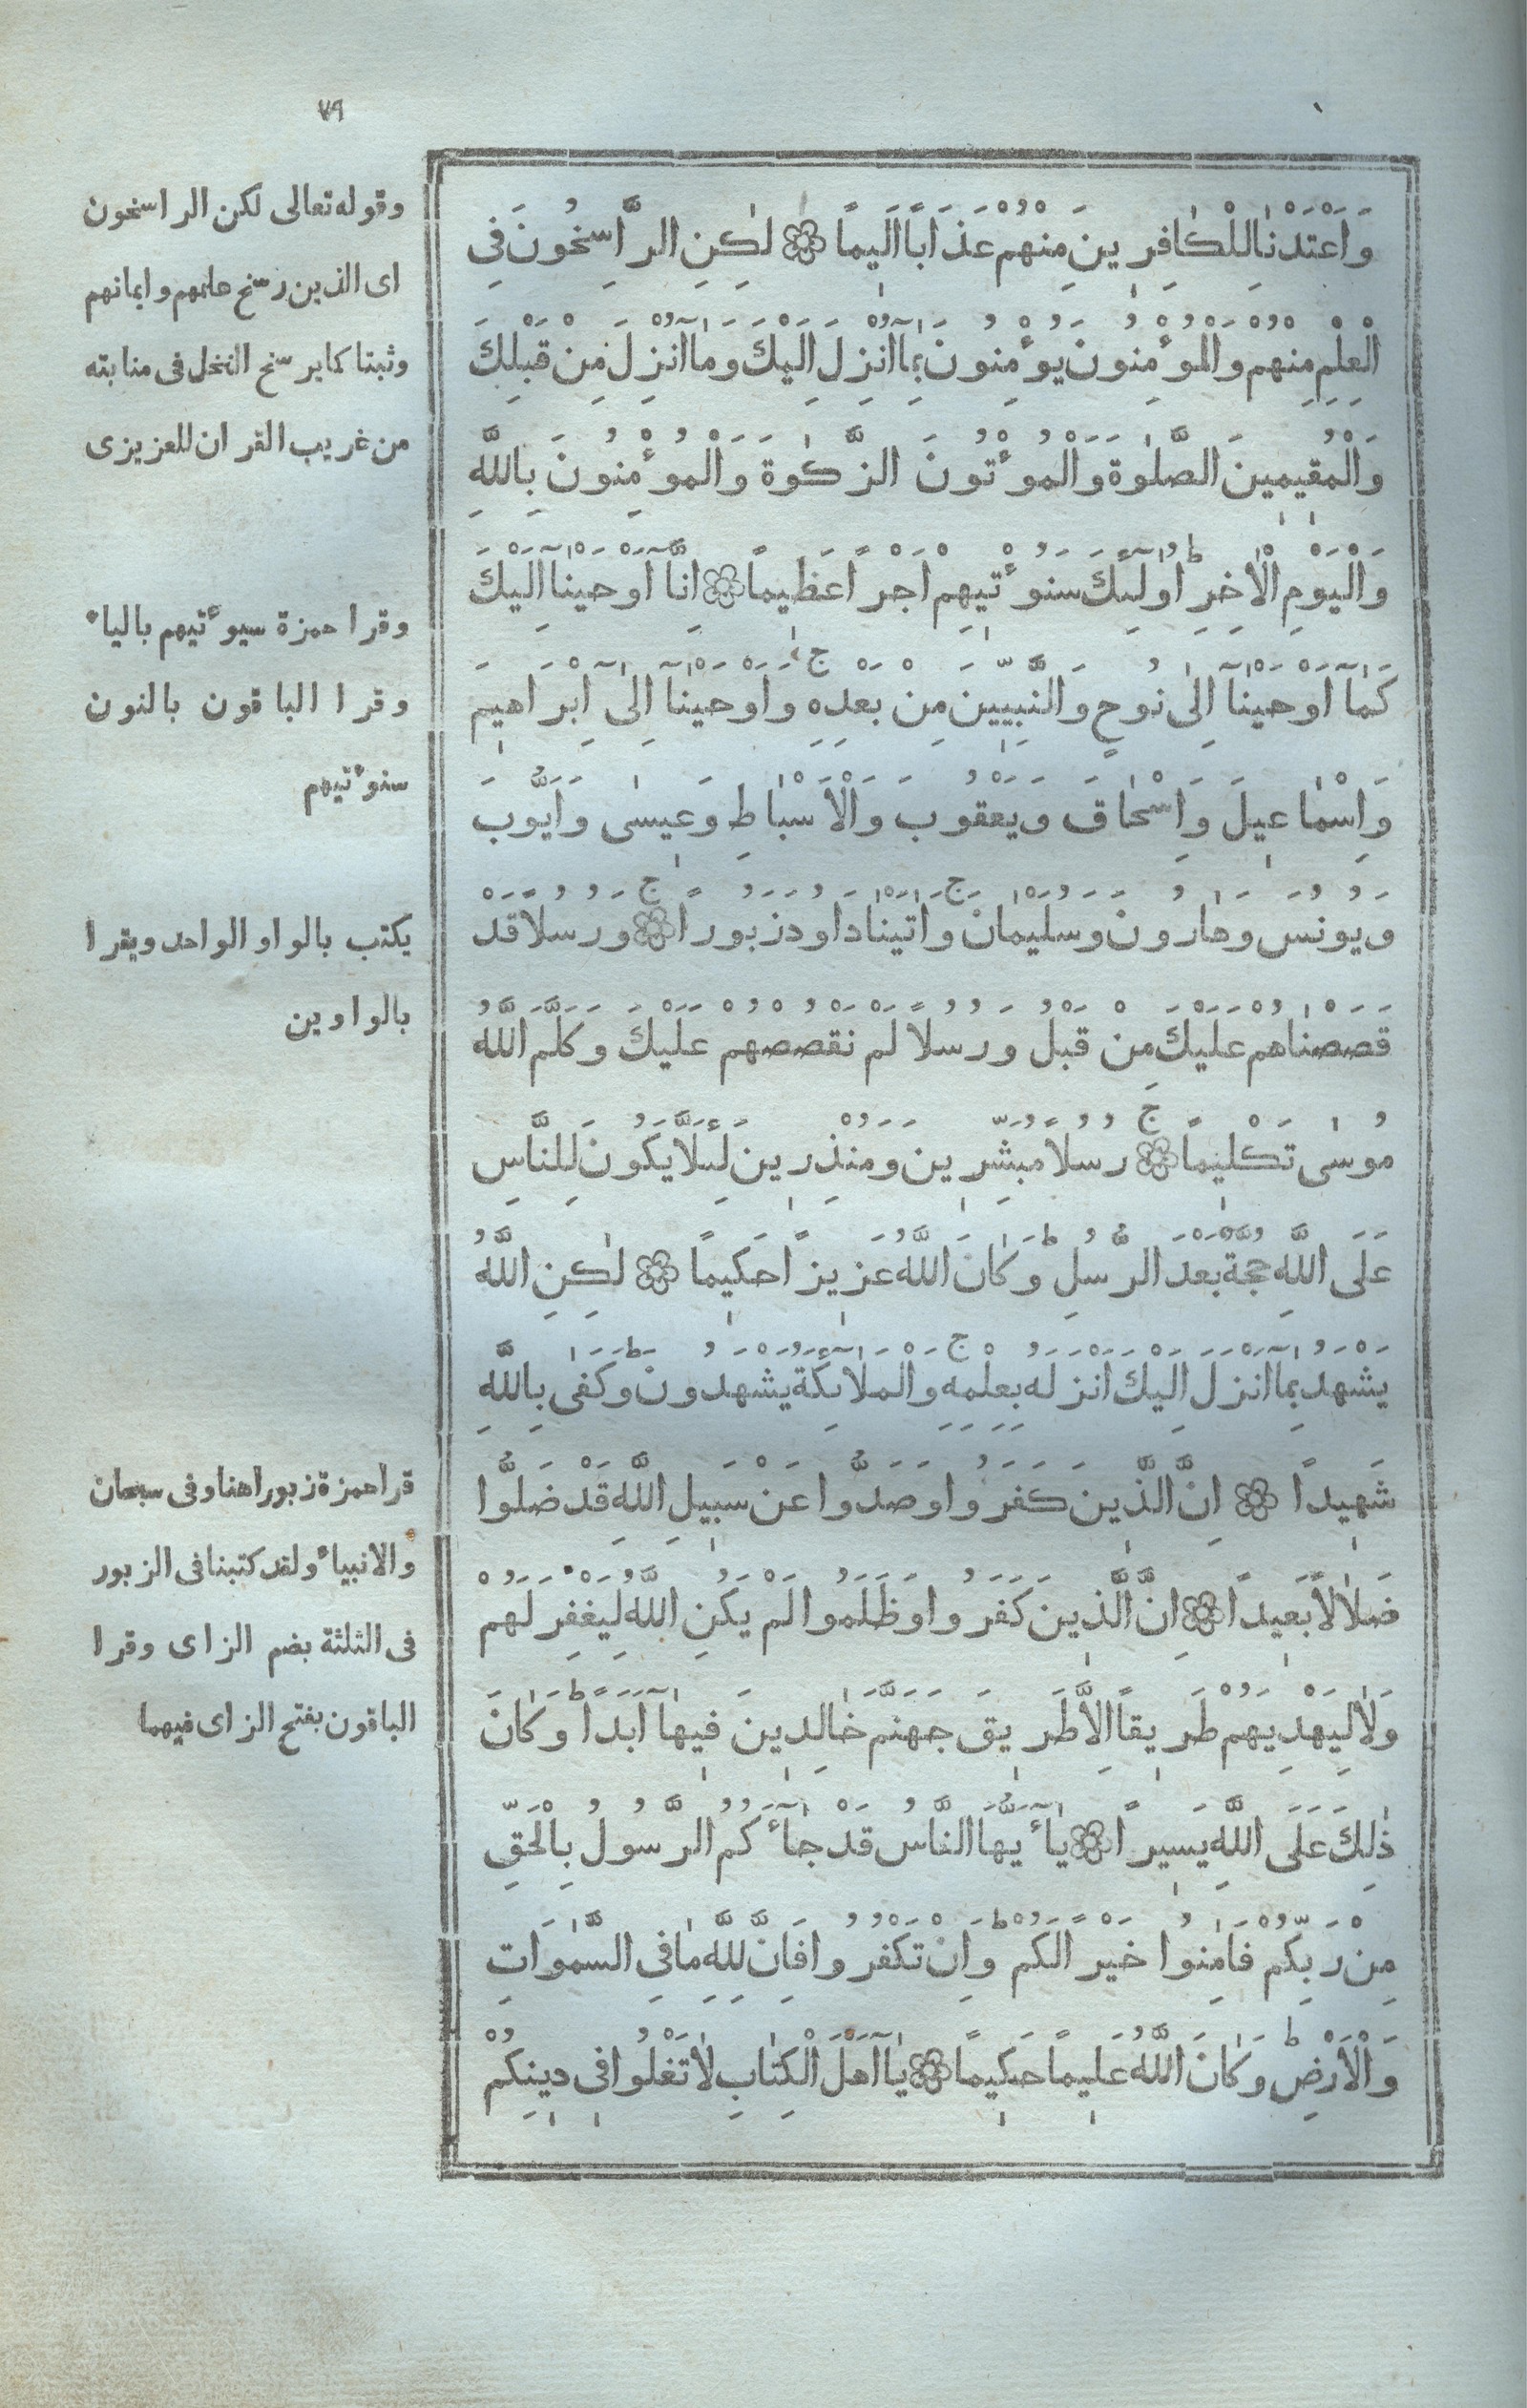 ٧٩
وَاَعْتَدْنَا لِلْكَافِرِينَ مِنْهُمْ عَذَابًا اَلِيمًا لٰكِنِ الرَّاسِخُونَ فِى
الْعِلْمِ مِنْهُمْ وَالْمُؤْمِنُونَ يُؤْمِنُونَ بِمَآ اُنْزِلَ اِلَيْكَ وَمَآ اُنْزِلَ مِنْ قَبْلِكَ
وَالْمُقِيمِينَ الصَّلٰوةَ وَالْمُؤْتُونَ الزَّكٰوةَ وَالْمُؤْمِنُونَ بِاللَّهِ
وَالْيَوْمِ الْاٰخِرِ ط اُولٰٓئِكَ سَنُؤْتِيهِمْ اَجْرًا عَظِيمًا اِنَّآ اَوْحَيْنَآ اِلَيْكَ
كَمَآ اَوْحَيْنَآ اِلٰى نُوحٍ وَالنَّبِيِّينَ مِنْ بَعْدِهِ ج وَاَوْحَيْنَآ اِلٰٓى اِبْرَاهِيمَ
وَاِسْمَاعِيلَ وَاِسْحَاقَ وَيَعْقُوبَ وَالْاَسْبَاطِ وَعِيسٰى وَاَيُّوبَ
وَيُونُسَ وَهَارُونَ وَسُلَيْمَانَ ج وَاٰتَيْنَا دَاوُدَ زَبُورًا ج وَرُسُلًا قَدْ
قَصَصْنَاهُمْ عَلَيْكَ مِنْ قَبْلُ وَرُسُلًا لَمْ نَقْصُصْهُمْ عَلَيْكَ وَكَلَّمَ اللَّهُ
مُوسٰى تَكْلِيمًا ج رُسُلًا مُبَشِّرِينَ وَمُنْذِرِينَ لِئَلَّا يَكُونَ لِلنَّاسِ
عَلَى اللَّهِ حُجَّةٌ بَعْدَ الرُّسُلِ ط وَكَانَ اللَّهُ عَزِيزًا حَكِيمًا لٰكِنِ اللَّهُ
يَشْهَدُ بِمَآ اَنْزَلَ اِلَيْكَ اَنْزَلَهُ بِعِلْمِهِ ج وَالْمَلَآئِكَةُ يَشْهَدُونَ ط وَكَفٰى بِاللَّهِ
شَهِيدًا اِنَّ الَّذِينَ كَفَرُوا وَصَدُّوا عَنْ سَبِيلِ اللَّهِ قَدْ ضَلُّوا
ضَلَالًا بَعِيدًا اِنَّ الَّذِينَ كَفَرُوا وَظَلَمُوا لَمْ يَكُنِ اللَّهُ لِيَغْفِرَ لَهُمْ
وَلَا لِيَهْدِيَهُمْ طَرِيقًا اِلَّا طَرِيقَ جَهَنَّمَ خَالِدِينَ فِيهَآ اَبَدًا ط وَكَانَ
ذٰلِكَ عَلَى اللَّهِ يَسِيرًا يَآ ءَيُّهَا النَّاسُ قَدْ جَآءَكُمُ الرَّسُولُ بِالْحَقِّ
مِنْ رَبِّكُمْ فَاٰمِنُوا خَيْرًا لَكُمْ ط وَاِنْ تَكْفُرُوا فَاِنَّ لِلَّهِ مَا فِى السَّمٰوَاتِ
وَالْاَرْضِ ط وَكَانَ اللَّهُ عَلِيمًا حَكِيمًا يَآ اَهْلَ الْكِتَابِ لَا تَغْلُوا فِى دِينِكُمْ
وقوله تعالى لكن الراسخون
اى الذين رسخ علمهم وايمانهم
وثبتا كما يرسخ النخل فى منابته
من غريب القران للعزيزى
وقرا حمزة سيوٴتيهم بالياء
وقرا الباقون بالنون
سنوٴتيهم
يكتب بالواو الواحد ويقرا
بالواوين
قرا حمزة زبورا هنا وفى سبحان
والانبياء ولقد كتبنا فى الزبور
فى الثلثة بضم الزاى وقرا
الباقون بفتح الزاى فيهما